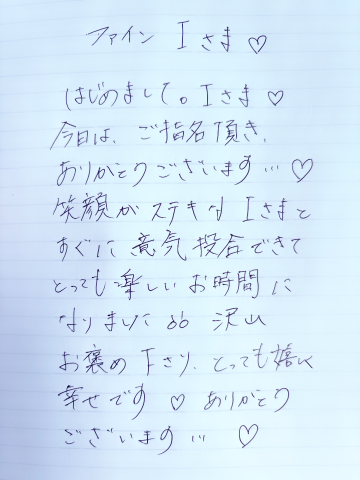 ファイン Iさま♡
はじめまして。Iさま♡
今日は、ご指名頂き、
ありがとうございます…♡
笑顔がステキな Iさまと
すぐに意気投合できて
とっても楽しいお時間に
なりました 沢山
お褒め下さり、とっても嬉しく
幸せです♡ ありがとう
ございます…♡